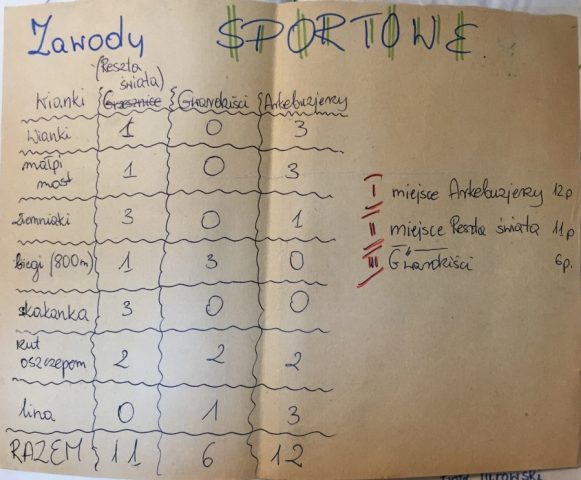 Zawody SPORTOWE
(Reszta świata)
Wianki Grzesznice Gwardziści Arkebuzjerzy
Wianki 1 0 3
małpi most 1 0 3
Ziemniaki 3 0 1
Biegi (800m) 1 3 0
skakanka 3 0 0
Rzut oszczepem 2 2 2
lina 0 1 3
RAZEM 11 6 12
I miejsce Arkebuzjerzy 12p
II miejsce Reszta świata 11p
III Gwardziści 6p.